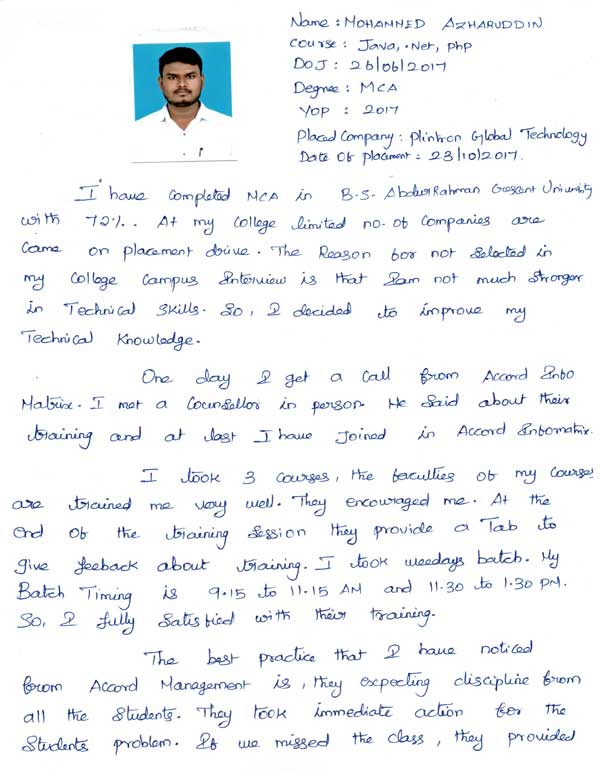 Name : MOHAMMED AZHARUDDIN
Course : Java, .Net, php
DOJ : 26/06/2017
Degree : MCA
YOP : 2017
Placed Company : Plintron Global Technology
Date Of Placement : 23/10/2017.
I have completed MCA in B.S. AbdurRahman Crescent University
with 72%. At my College limited no. of Companies are
Came on placement drive. The Reason for not Selected in
my College Campus Interview is that Iam not much Stronger
in Technical Skills. So, I decided to improve my
Technical Knowledge.
One day I get a call from Accord Info
Matrix. I met a Counsellor in person. He Said about their
training and at last I have Joined in Accord Infomatrix.
I took 3 courses, the faculties of my Courses
are trained me very well. They encouraged me. At the
end of the training Session they provide a Tab to
give feeback about training. I took weedays batch. My
Batch Timing is 9.15 to 11.15 AM and 11.30 to 1.30 PM.
So, I fully Satisfied with their training.
The best practice that I have noticed
from Accord Management is, they expecting discipline from
all the Students. They took immediate action for the
Students problem. If we missed the class, they provided